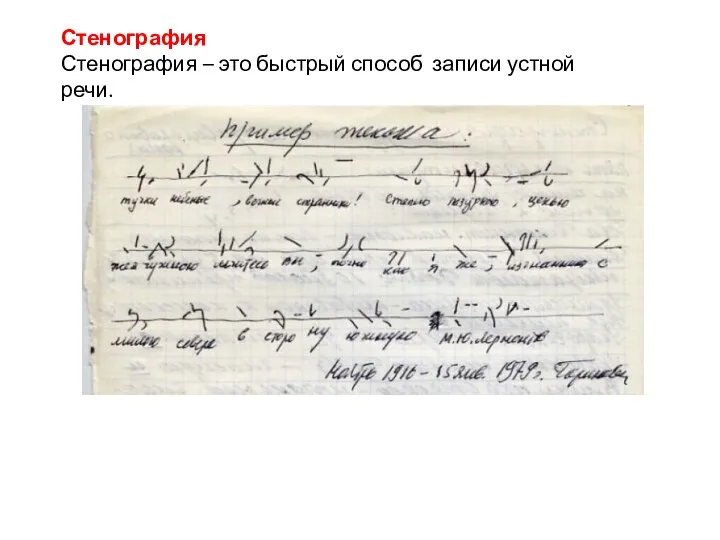 Стенография
Стенография – это быстрый способ записи устной
речи.
Пример текста:
тучки небесные, вечные странники! Степью лазурною, цепью
жемчужною мчитесь вы, точно как я же, изгнанники с
милого севера в сторону южную М.Ю. Лермонтов
1916 – 15 янв. 1979г.